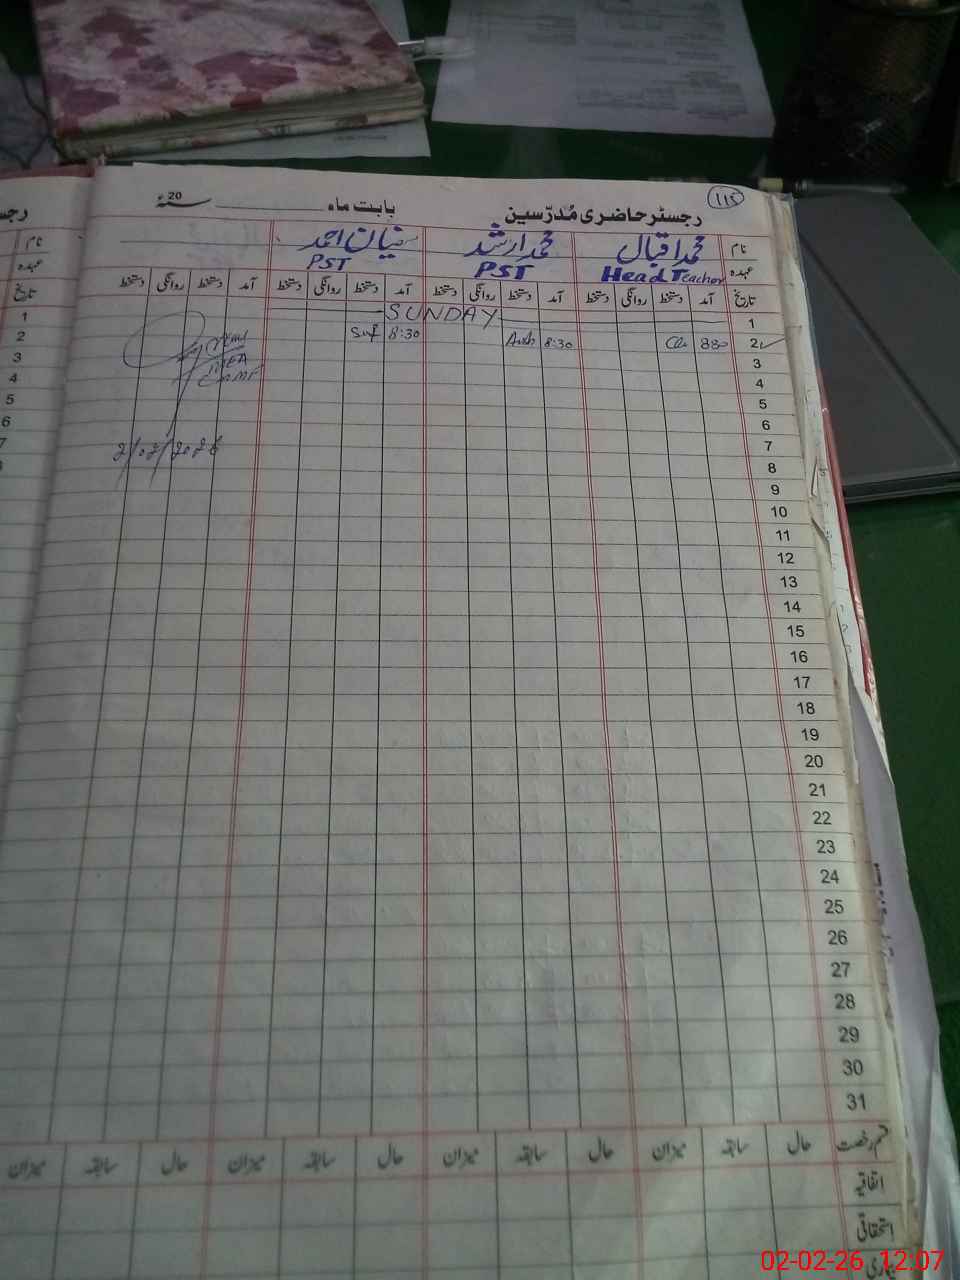 ۱۱۲
رجسٹر حاضری مُدرّسین بابت ماہ ــــــــ سنہ 20ء
نام محمد اقبال محمد ارشد سفیان احمد
عہدہ Head Teacher PST PST
تاریخ آمد دستخط روانگی دستخط آمد دستخط روانگی دستخط آمد دستخط روانگی دستخط آمد دستخط روانگی دستخط
1 SUNDAY
2 830 8:30 8:30
3
4
5
6
7
8
9
10
11
12
13
14
15
16
17
18
19
20
21
22
23
24
25
26
27
28
29
30
31
MEA
2/02/2026
قسم رخصت حال سابقہ میزان حال سابقہ میزان حال سابقہ میزان حال سابقہ میزان
اتفاقیہ
استحقاقی
بیماری
رجس
نام
عہدہ
تاریخ
1
2
3
4
5
6
7
02-02-26 12:07